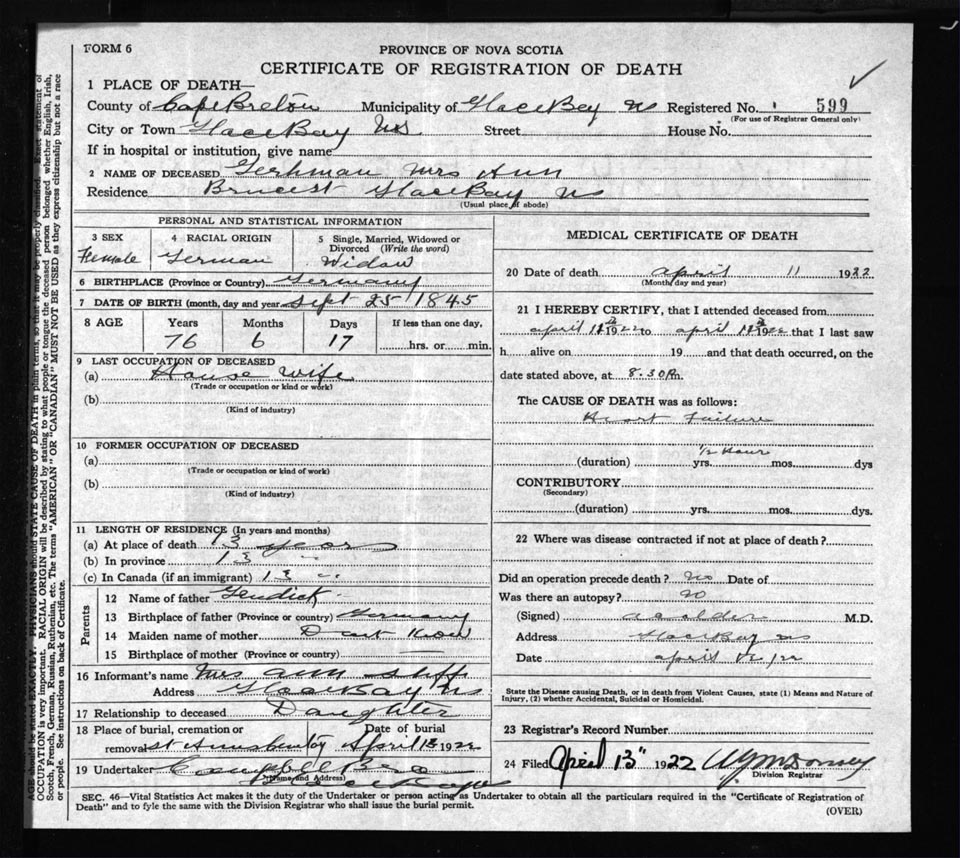 FORM 6
PROVINCE OF NOVA SCOTIA
CERTIFICATE OF REGISTRATION OF DEATH
1 PLACE OF DEATH—
County of Cape Breton Municipality of Glace Bay NS Registered No. 599
(For use of Registrar General only)
City or Town Glace Bay NS Street House No.
If in hospital or institution, give name
2 NAME OF DECEASED Gerhman Mrs Ann
Residence Bruce St Glace Bay NS
(Usual place of abode)
PERSONAL AND STATISTICAL INFORMATION
3 SEX 4 RACIAL ORIGIN 5 Single, Married, Widowed or
Divorced (Write the word)
Female German Widow
6 BIRTHPLACE (Province or Country) Germany
7 DATE OF BIRTH (month, day and year) Sept 25 1845
8 AGE Years Months Days If less than one day,
76 6 17 hrs. or min.
9 LAST OCCUPATION OF DECEASED
(a) House Wife
(Trade or occupation or kind or work)
(b)
(Kind of industry)
10 FORMER OCCUPATION OF DECEASED
(a)
(Trade or occupation or kind of work)
(b)
(Kind of industry)
11 LENGTH OF RESIDENCE (In years and months)
(a) At place of death 13 years
(b) In province 13
(c) In Canada (if an immigrant) 13 "
Parents
12 Name of father
13 Birthplace of father (Province or country) Germany
14 Maiden name of mother Dont Know
15 Birthplace of mother (Province or country) —
16 Informant's name Mrs Ann
Address Glace Bay NS
17 Relationship to deceased Daughter
18 Place of burial, cremation or Date of burial
removal St Anns April 13 1922
19 Undertaker Campbell Bro
(Name and Address)
MEDICAL CERTIFICATE OF DEATH
20 Date of death April 11 1922
(Month, day and year)
21 I HEREBY CERTIFY, that I attended deceased from
april 1922 to april 1922 that I last saw
h alive on 19 and that death occurred, on the
date stated above, at 8.30 Pm.
The CAUSE OF DEATH was as follows:
Heart Failure
1/2 Hour
(duration) yrs. mos. dys
CONTRIBUTORY
(Secondary)
(duration) yrs. mos. dys.
22 Where was disease contracted if not at place of death?
Did an operation precede death? No Date of
Was there an autopsy? No
(Signed) M.D.
Address Glace Bay NS
Date april 12/22
State the Disease causing Death, or in death from Violent Causes, state (1) Means and Nature of
Injury, (2) whether Accidental, Suicidal or Homicidal.
23 Registrar's Record Number
24 Filed April 13" 1922
Division Registrar
SEC. 46—Vital Statistics Act makes it the duty of the Undertaker or person acting as Undertaker to obtain all the particulars required in the "Certificate of Registration of
Death" and to fyle the same with the Division Registrar who shall issue the burial permit.
(OVER)
PHYSICIANS should STATE CAUSE OF DEATH in plain terms, so that it may be properly classified. Exact statement of
OCCUPATION is very important. RACIAL ORIGIN will be described by stating to what people or tongue the deceased person belonged whether English, Irish,
Scotch, French, German, Russian, Ruthenian, etc. The terms "AMERICAN" OR "CANADIAN" MUST NOT BE USED as they express citizenship but not a race
or people. See instructions on back of Certificate.